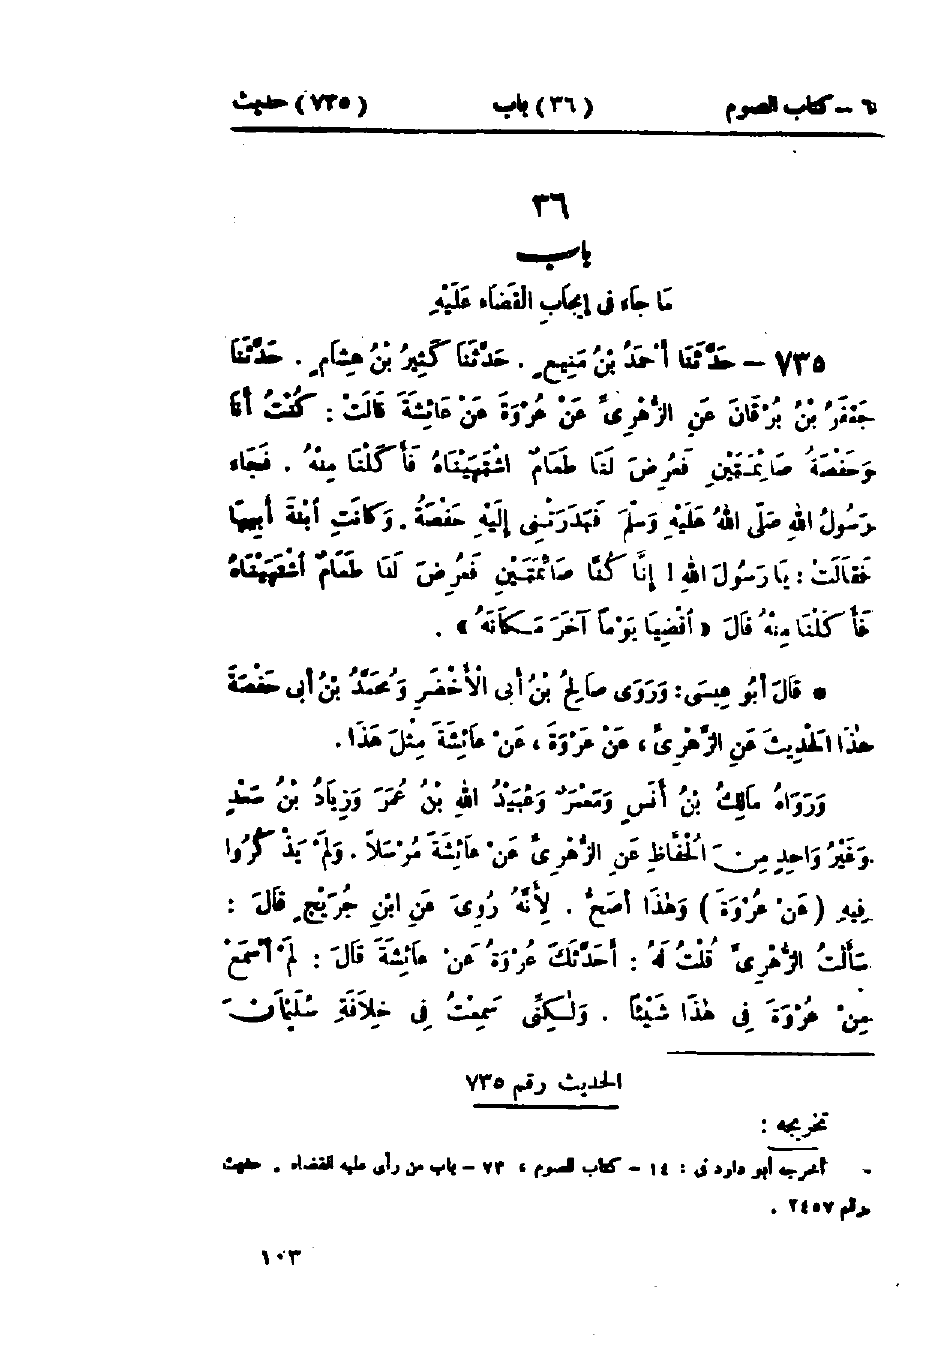 ٦ – كتاب الصوم (٣٦) باب (٧٣٥) حديث
٣٦
باب
مَا جَاءَ فِى إِيجَابِ الْقَضَاءِ عَلَيْهِ
٧٣٥ – حَدَّثَنَا أَحْمَدُ بْنُ مَنِيعٍ . حَدَّثَنَا كَثِيرُ بْنُ هِشَامٍ . حَدَّثَنَا
جَعْفَرُ بْنُ بُرْقَانَ عَنِ الزُّهْرِىِّ عَنْ عُرْوَةَ عَنْ عَائِشَةَ قَالَتْ : كُنْتُ أَنَا
وَحَفْصَةُ صَائِمَتَيْنِ فَعُرِضَ لَنَا طَعَامٌ اشْتَهَيْنَاهُ فَأَكَلْنَا مِنْهُ . فَجَاءَ
رَسُولُ اللهِ صَلَّى اللهُ عَلَيْهِ وَسَلَّمَ فَبَدَرَتْنِى إِلَيْهِ حَفْصَةُ . وَكَانَتِ ابْنَةَ أَبِيهَا
فَقَالَتْ : يَا رَسُولَ اللهِ ! إِنَّا كُنَّا صَائِمَتَيْنِ فَعُرِضَ لَنَا طَعَامٌ اشْتَهَيْنَاهُ
فَأَكَلْنَا مِنْهُ قَالَ « اقْضِيَا يَوْماً آخَرَ مَكَانَهُ » .
● قَالَ أَبُو عِيسَى : وَرَوَى صَالِحُ بْنُ أَبِى الْأَخْضَرِ وَمُحَمَّدُ بْنُ أَبِى حَفْصَةَ
هٰذَا الْحَدِيثَ عَنِ الزُّهْرِىِّ ، عَنْ عُرْوَةَ ، عَنْ عَائِشَةَ مِثْلَ هَذَا .
وَرَوَاهُ مَالِكُ بْنُ أَنَسٍ وَمَعْمَرٌ وَعُبَيْدُ اللهِ بْنُ عُمَرَ وَزِيَادُ بْنُ سَعْدٍ
وَغَيْرُ وَاحِدٍ مِنَ الْحُفَّاظِ عَنِ الزُّهْرِىِّ عَنْ عَائِشَةَ مُرْسَلاً . وَلَمْ يَذْكُرُوا
فِيهِ (عَنْ عُرْوَةَ) وَهٰذَا أَصَحُّ . لِأَنَّهُ رُوِىَ عَنِ ابْنِ جُرَيْجٍ قَالَ :
سَأَلْتُ الزُّهْرِىَّ قُلْتُ لَهُ : أَحَدَّثَكَ عُرْوَةُ عَنْ عَائِشَةَ قَالَ : لَمْ أَسْمَعْ
مِنْ عُرْوَةَ فِى هٰذَا شَيْئاً . وَلٰكِنِّى سَمِعْتُ فِى خِلاَفَةِ سُلَيْمَانَ
الحديث رقم ٧٣٥
تخريجه :
- أخرجه أبو داود فى : ١٤ – كتاب الصوم ، ٧٣ – باب من رأى عليه القضاء . حديث
رقم ٢٤٥٧ .
١٠٣